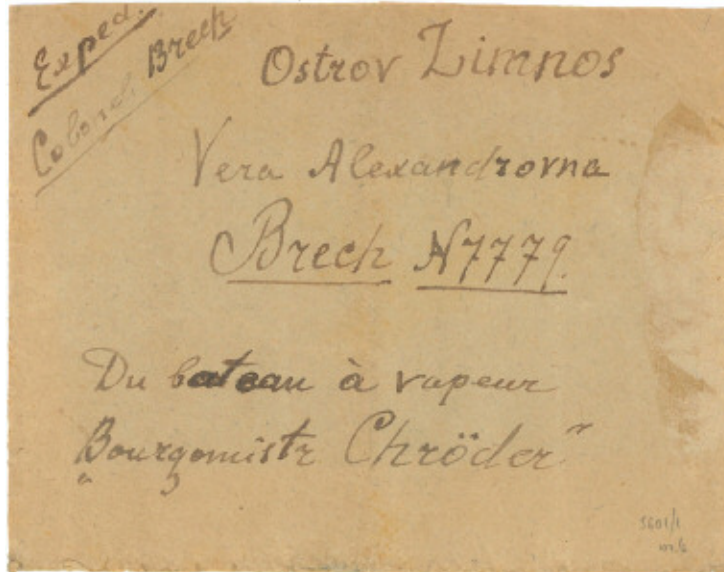 Exped.
Colonel Brech
Ostrov Limnos
Vera Alexandrovna
Brech N7779.
Du bateau à vapeur
„Bourgomistr Chröder"
5601/1